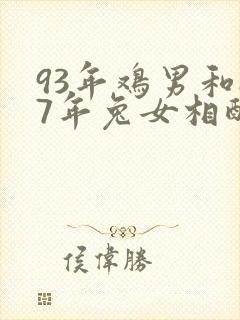 93年鸡男和
7年兔女相配
侯偉勝